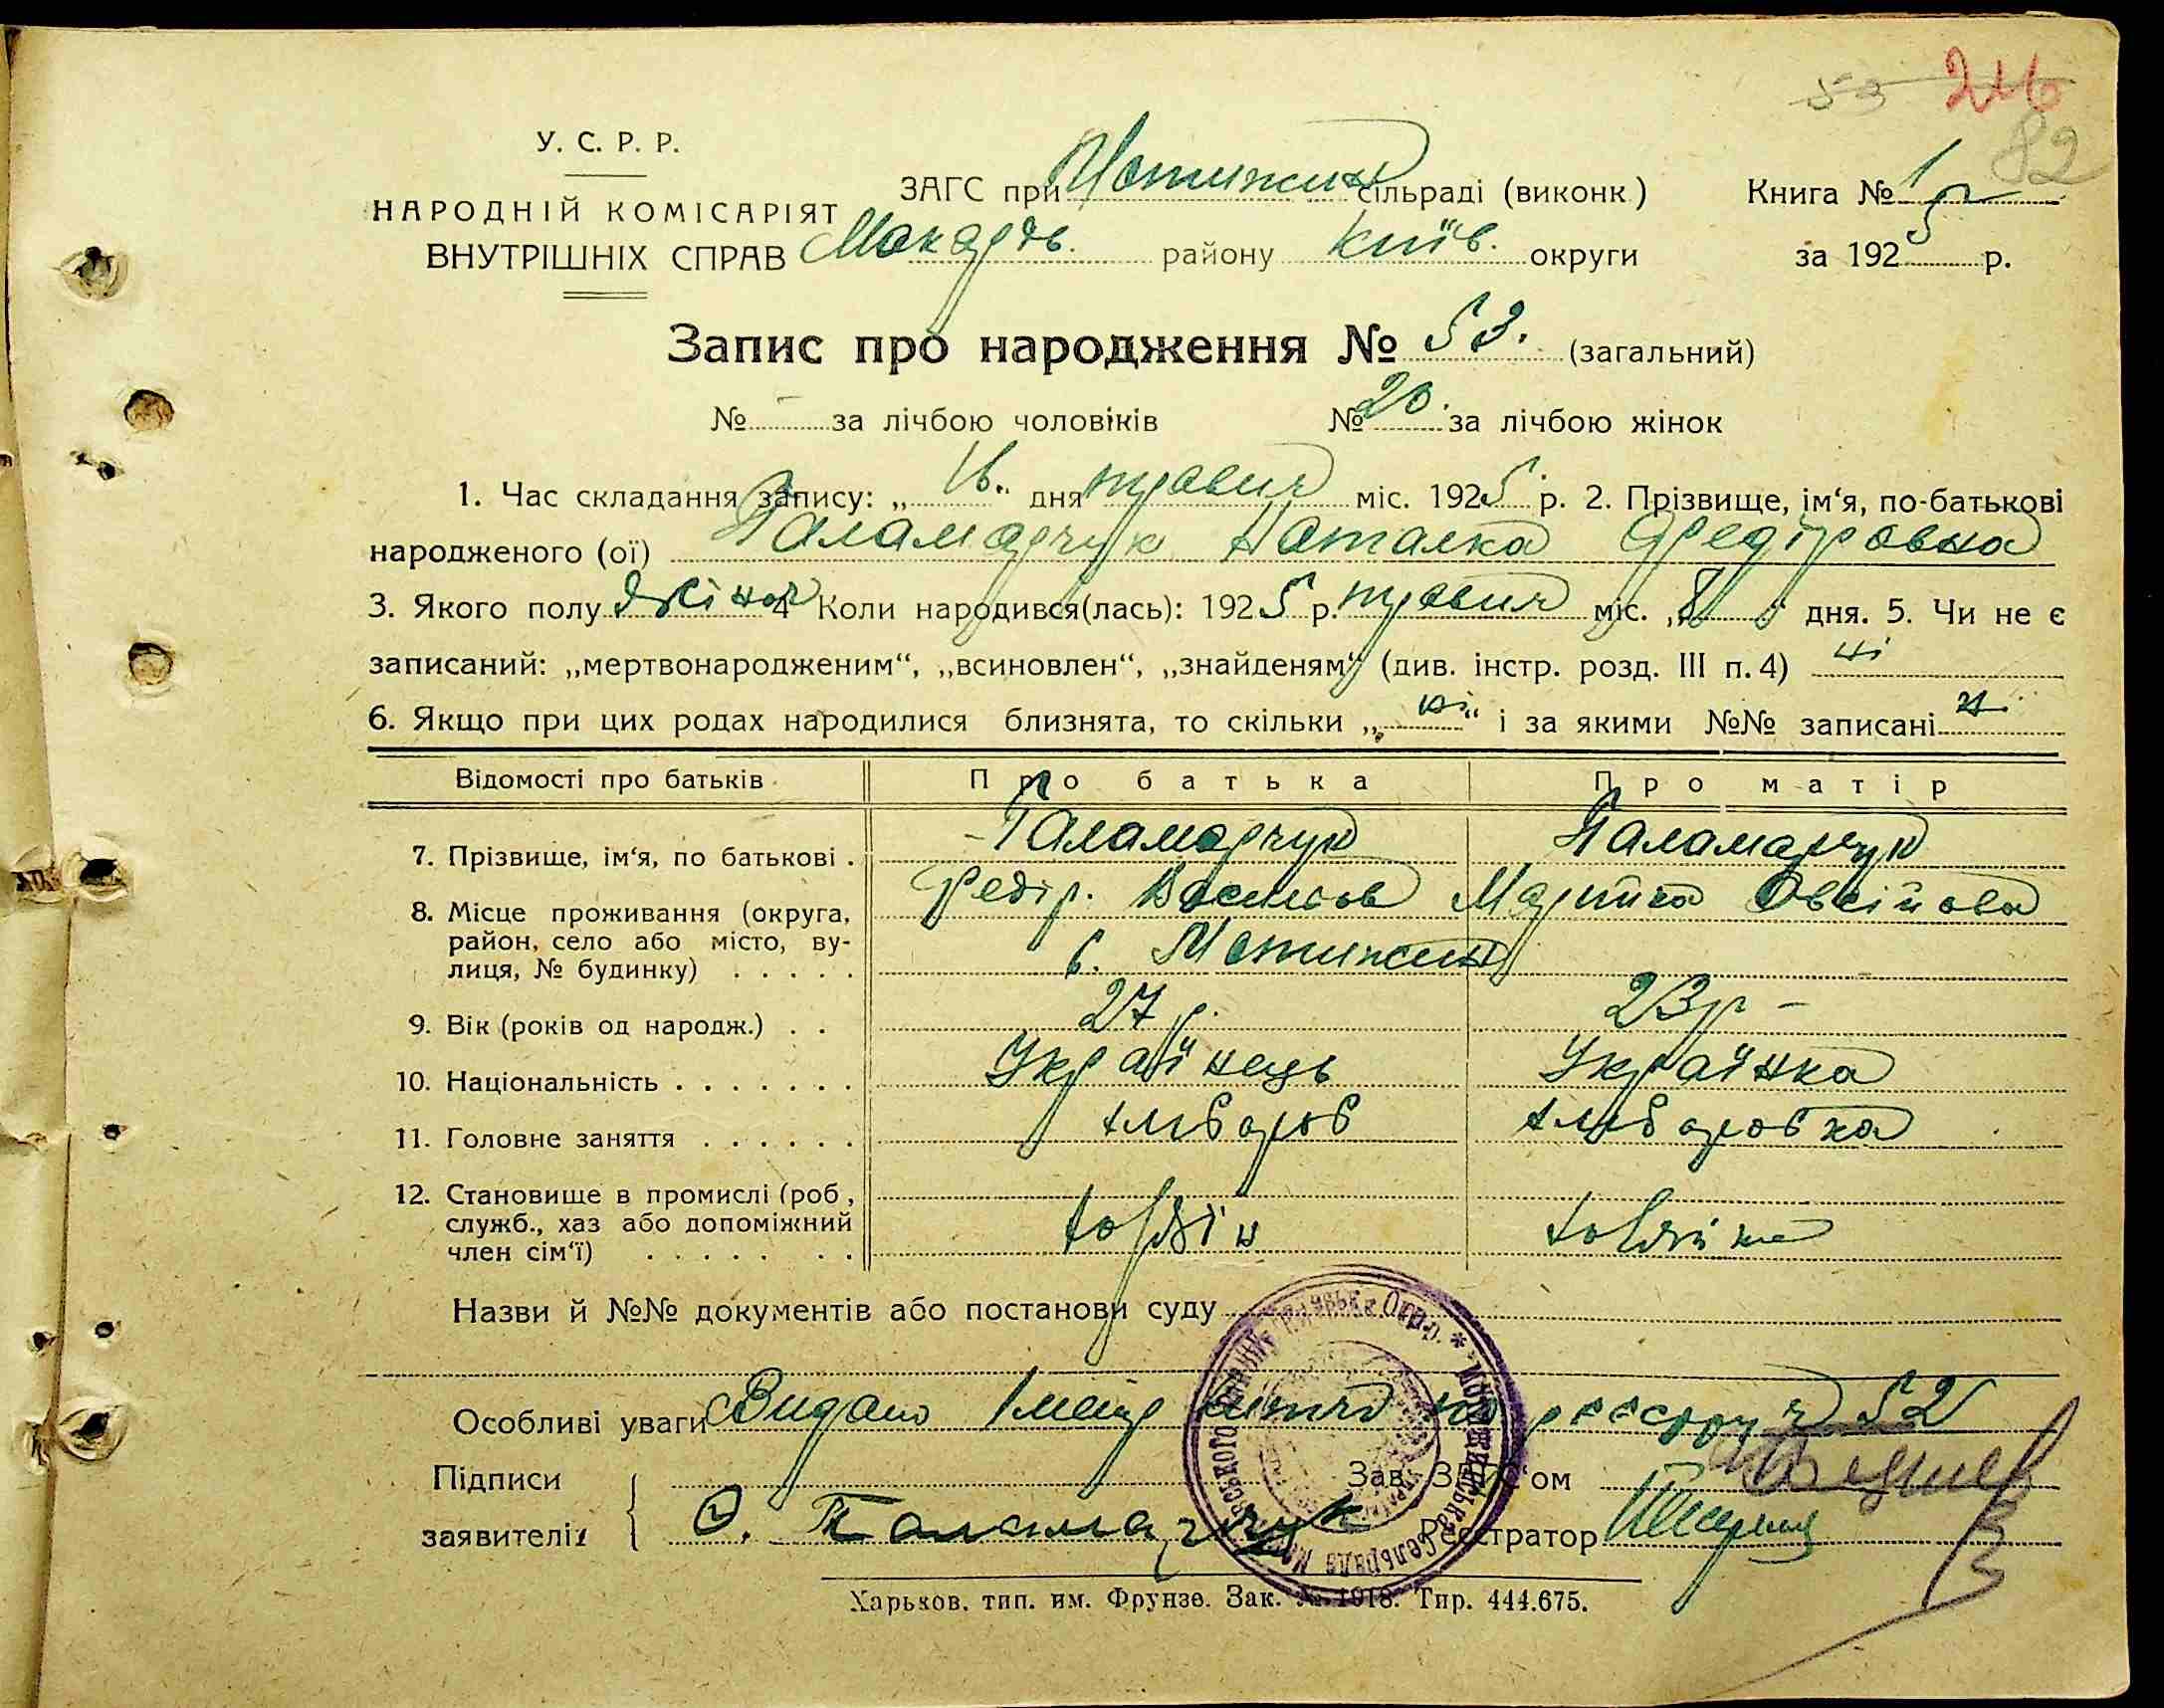 53 246
82
У. С. Р. Р.
НАРОДНІЙ КОМІСАРІЯТ
ВНУТРІШНІХ СПРАВ
ЗАГС при Мотижин сільраді (виконк)
Макарів. району Київ. округи
Книга № 1
за 1925 р.
Запис про народження № 53. (загальний)
№ - за лічбою чоловіків № 20. за лічбою жінок
1. Час складання запису: „16.“ дня травня міс. 1925 р. 2. Прізвище, ім‘я, по-батькові
народженого (ої) Паламарчук Наталка Федіровна
3. Якого полу жіноч 4 Коли народився(лась): 1925 р. травня міс. „8“ дня. 5. Чи не є
записаний: „мертвонародженим“, „всиновлен“, „знайденям“ (див. інстр. розд. III п. 4) ні
6. Якщо при цих родах народилися близнята, то скільки „ні“ і за якими №№ записані ні
Відомості про батьків Про батька Про матір
7. Прізвище, ім‘я, по батькові . Паламарчук Паламарчук
Федір. Васильов Марийка Овсійова
8. Місце проживання (округа, район, село або місто, ву-
лиця, № будинку) . . . . . с. Мотижин
9. Вік (років од народж.) . . 27 р. 23 р -
10. Національність . . . . . . . Українець Українка
11. Головне заняття . . . . . . хлібороб хліборобка
12. Становище в промислі (роб, служб., хаз або допоміжний
член сім‘ї) . . . . . . . хозяін хозяіка
Назви й №№ документів або постанови суду
Особливі уваги Видано по реєстру № 52
Підписи
заявителів
Зав. ЗАГС‘ом
О. Паламарчук Реєстратор
Харьков. тип. им. Фрунзе. Зак. № 1918. Тир. 444.675.